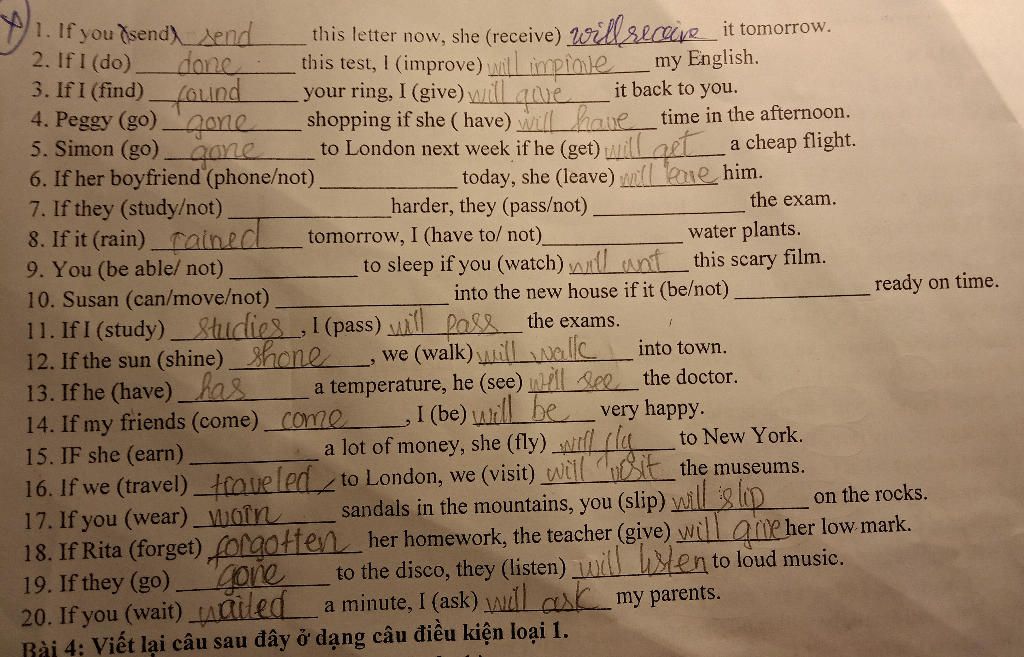 1. If you (send) send this letter now, she (receive) will receive it tomorrow.
2. If I (do) done this test, I (improve) will improve my English.
3. If I (find) found your ring, I (give) will give it back to you.
4. Peggy (go) gone shopping if she ( have) will have time in the afternoon.
5. Simon (go) gone to London next week if he (get) will get a cheap flight.
6. If her boyfriend (phone/not) ____________ today, she (leave) will leave him.
7. If they (study/not) ____________ harder, they (pass/not) ____________ the exam.
8. If it (rain) rained tomorrow, I (have to/ not) ____________ water plants.
9. You (be able/ not) ____________ to sleep if you (watch) will this scary film.
10. Susan (can/move/not) ____________ into the new house if it (be/not) ____________ ready on time.
11. If I (study) studies , I (pass) will pass the exams.
12. If the sun (shine) shone , we (walk) will walk into town.
13. If he (have) has a temperature, he (see) will see the doctor.
14. If my friends (come) come , I (be) will be very happy.
15. IF she (earn) ____________ a lot of money, she (fly) will fly to New York.
16. If we (travel) traveled to London, we (visit) will visit the museums.
17. If you (wear) worn sandals in the mountains, you (slip) will slip on the rocks.
18. If Rita (forget) forgotten her homework, the teacher (give) will give her low mark.
19. If they (go) gone to the disco, they (listen) will listen to loud music.
20. If you (wait) waited a minute, I (ask) will ask my parents.
Bài 4: Viết lại câu sau đây ở dạng câu điều kiện loại 1.